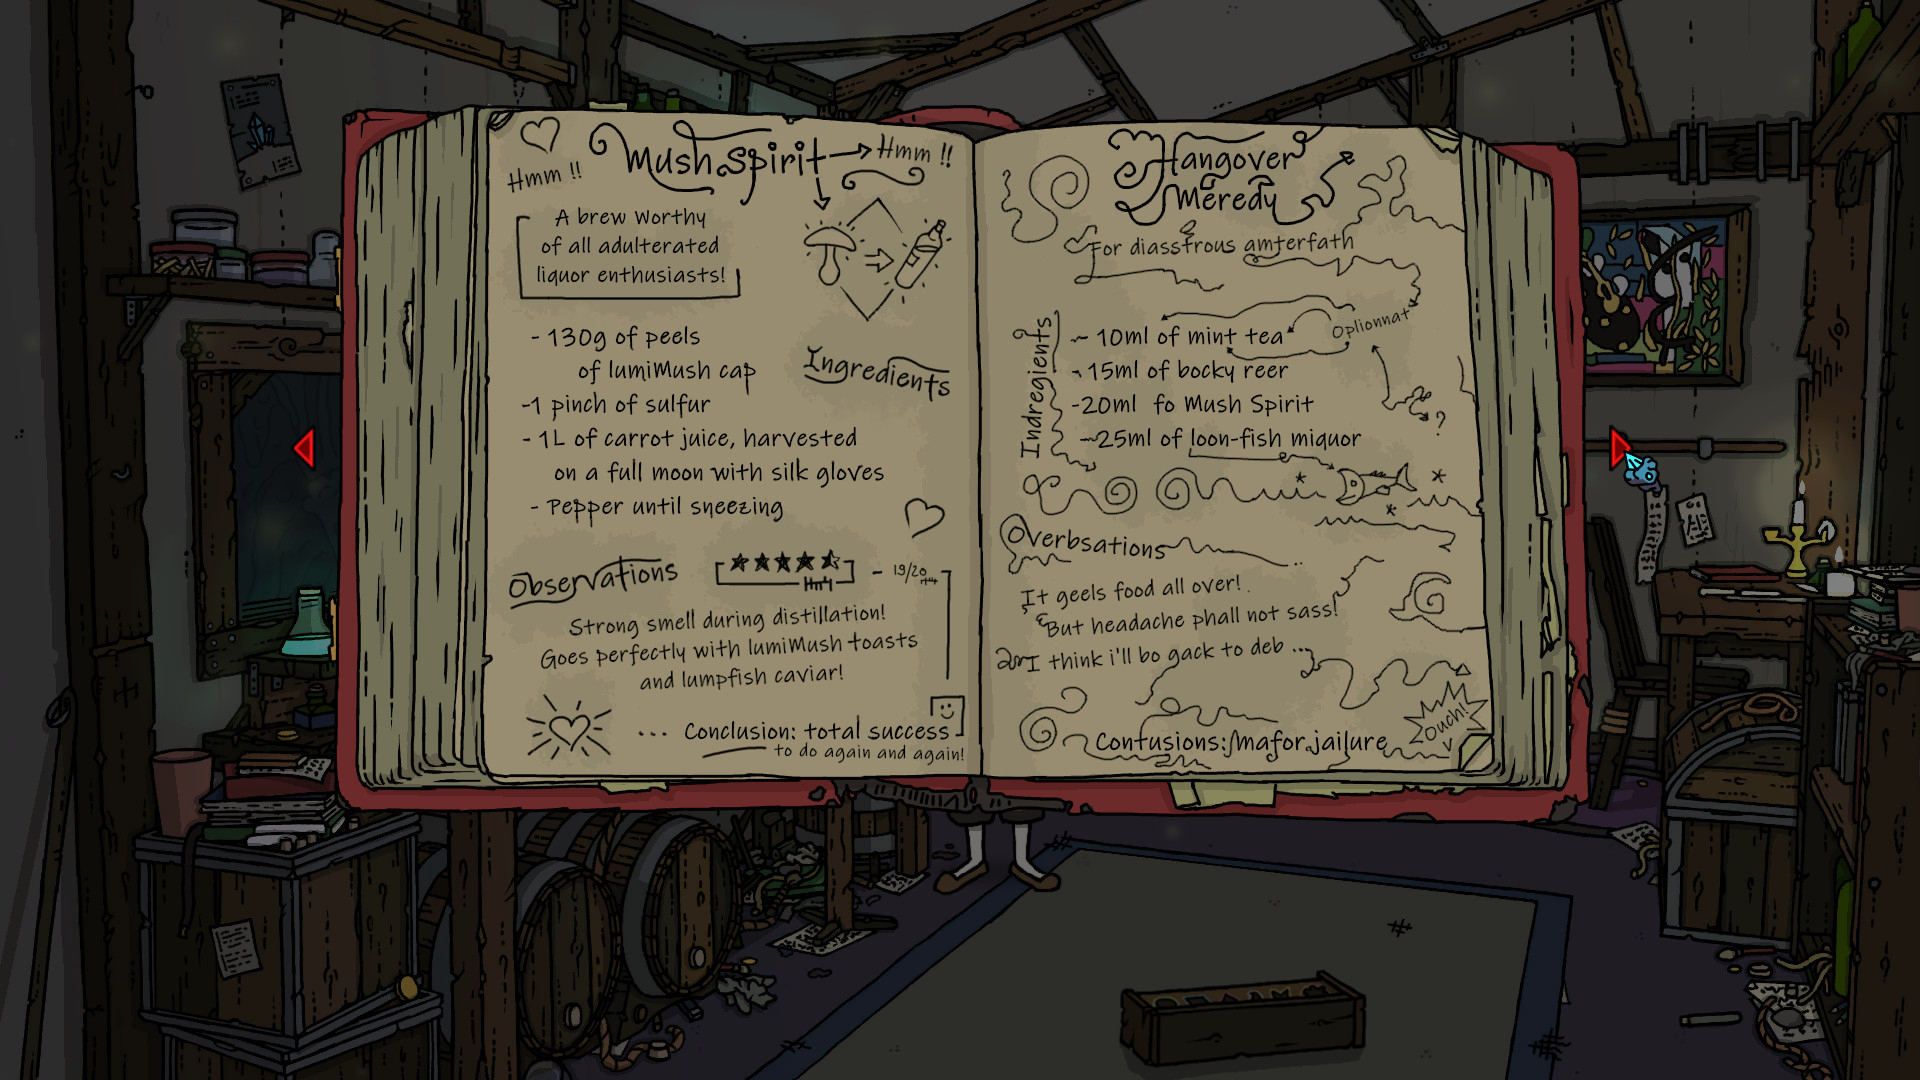 Mush Spirit
Hmm !!
Hmm !!
A brew Worthy
of all adulterated
liquor enthusiasts!
- 130g of peels
of lumiMush cap
-1 pinch of sulfur
- 1L of carrot juice, harvested
on a full moon with silk gloves
- Pepper until sneezing
Ingredients
Observations
- 19/20
Strong smell during distillation!
Goes perfectly with lumiMush toasts
and lumpfish caviar!
... Conclusion: total success
to do again and again!
Hangover
Meredy
For diasstrous amterfath
Indregients
- 10ml of mint tea
Oplionnat
- 15ml of bocky reer
-20ml fo Mush Spirit
-25ml of loon-fish miquor
?
Overbsations
It geels food all over!
But headache phall not sass!
I think i'll bo gack to deb ...
Confusions: mafor jailure
Ouch!